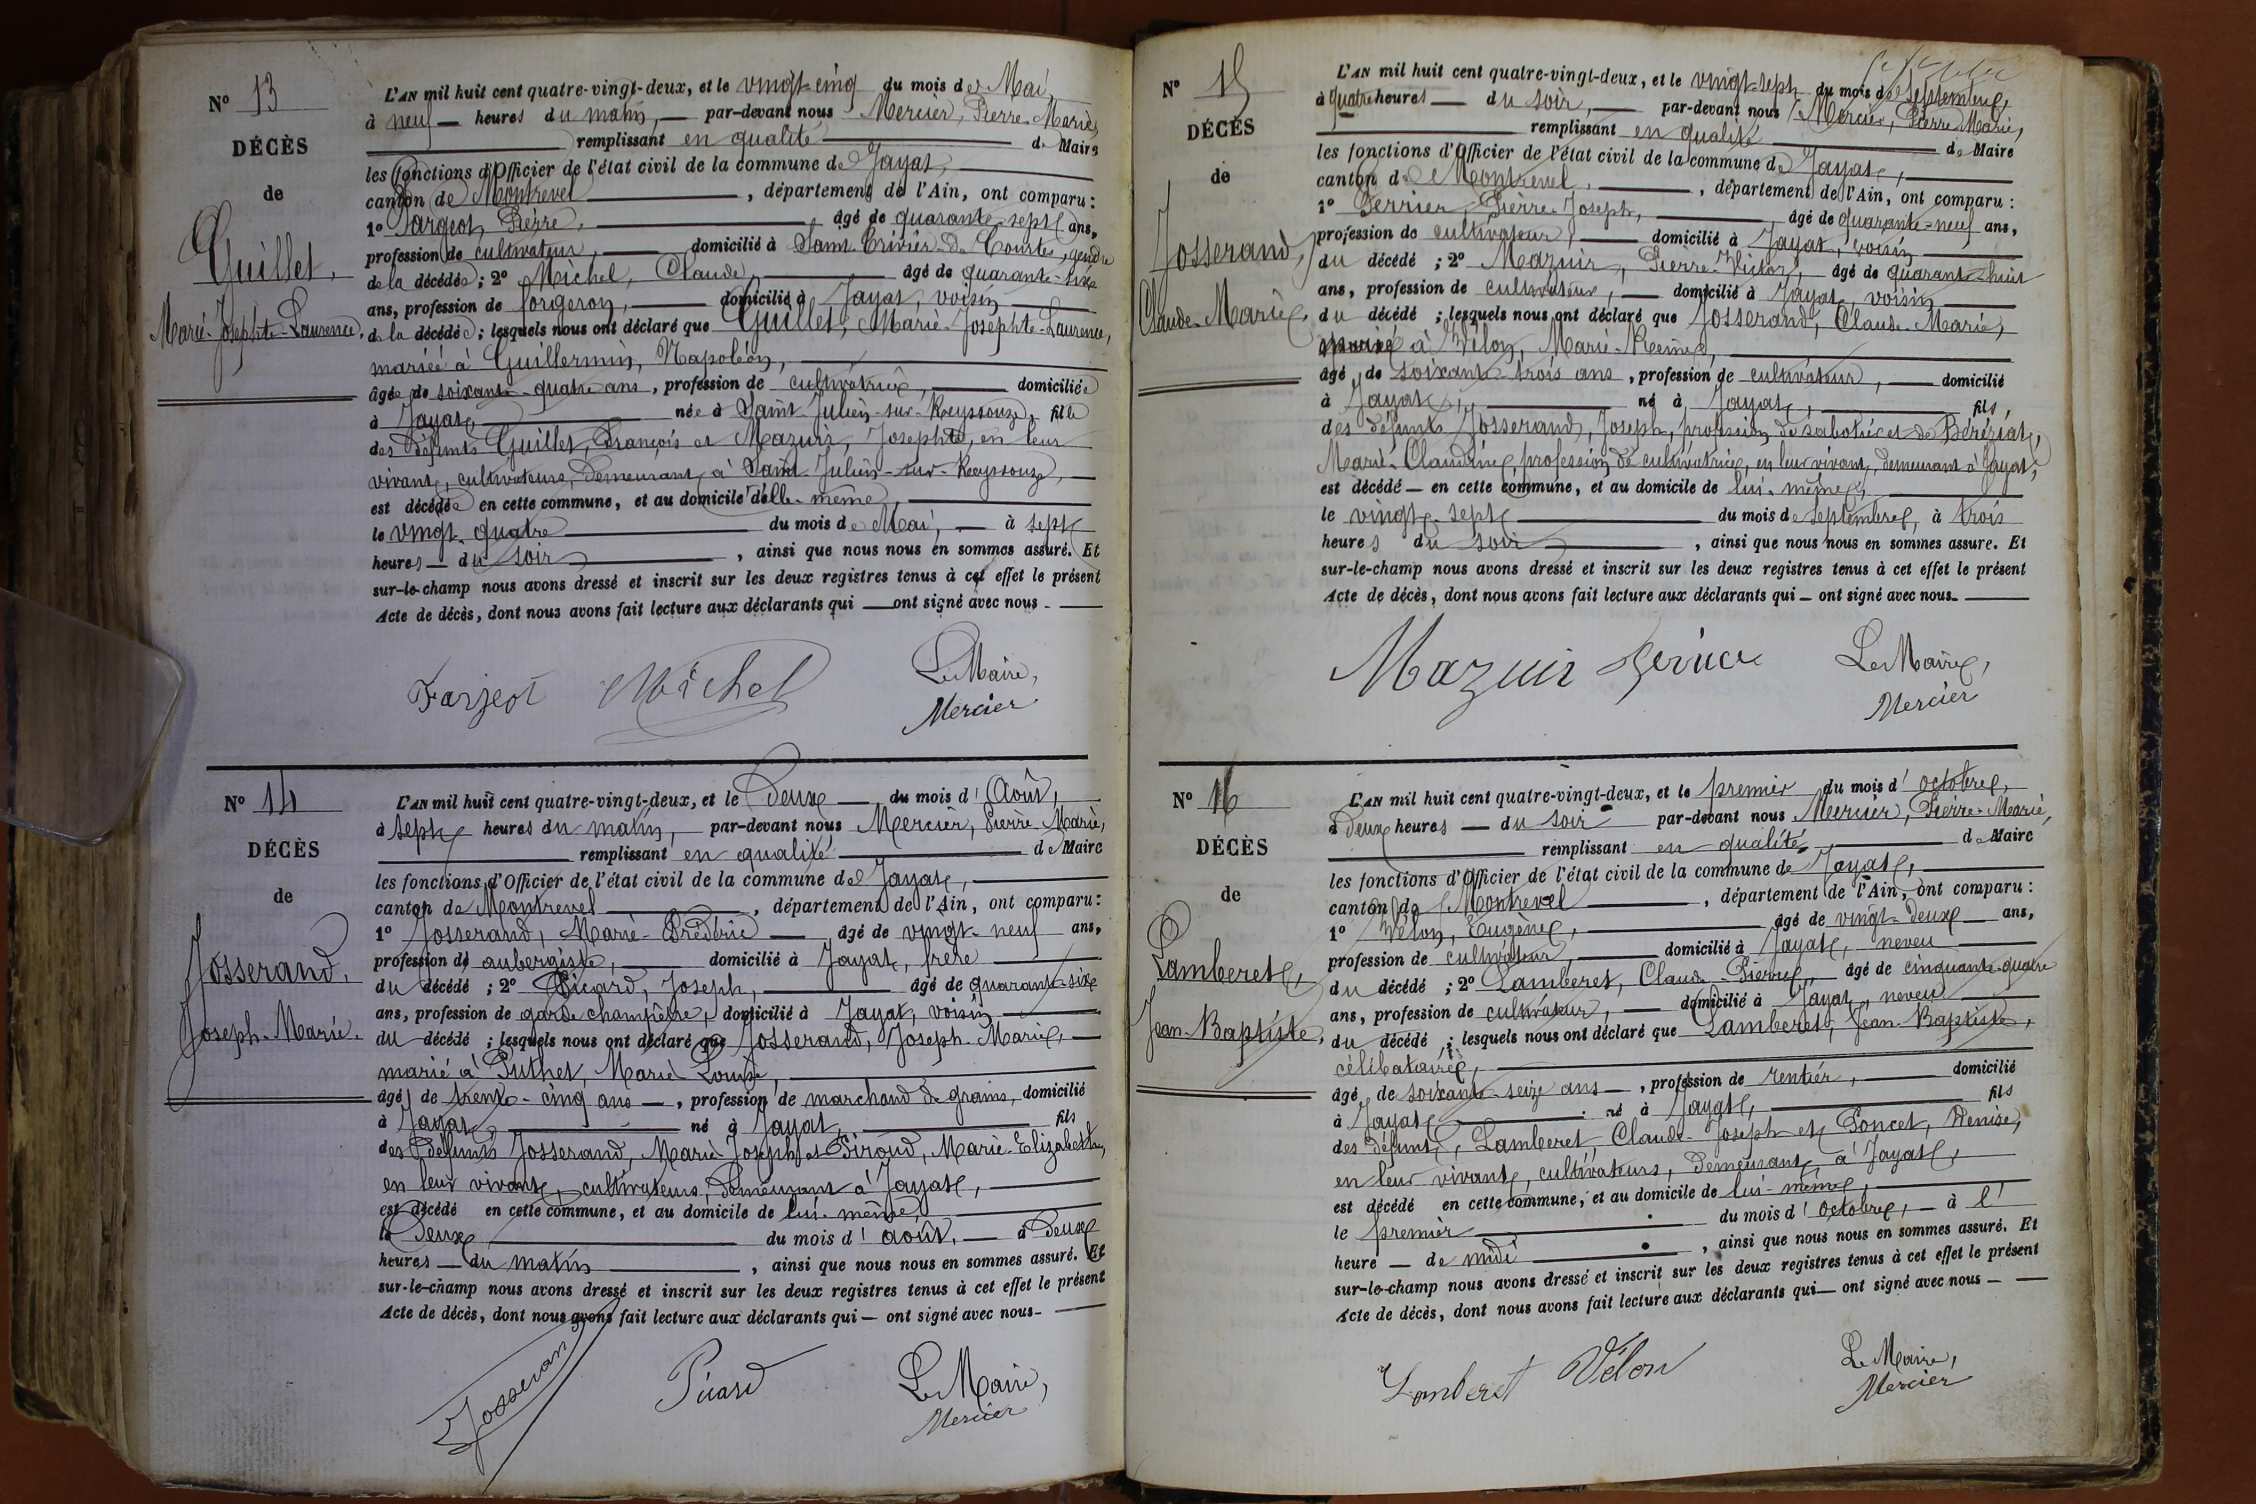 N° 13
DÉCÈS
de
Guillet,
Marie-Josephte-Laurence,
L'AN mil huit cent quatre-vingt-deux, et le vingt-cinq du mois de Mai,
à neuf heures du matin, par-devant nous Mercier, Pierre-Marie,
remplissant en qualité de Maire
les fonctions d'Officier de l'état civil de la commune de Jayat,
canton de Montrevel, département de l'Ain, ont comparu :
1° Fargeot, Pierre, âgé de quarante-sept ans,
profession de cultivateur, domicilié à Saint Trivier-de Courtes, gendre
de la décédée ; 2° Michel, Claude, âgé de quarante-six
ans, profession de forgeron, domicilié à Jayat, voisin
de la décédée ; lesquels nous ont déclaré que Guillet, Marie-Josephte-Laurence,
mariée à Guillermin, Napoléon,
âgée de soixante-quatre ans, profession de cultivatrice, domiciliée
à Jayat, née à Saint-Julien-sur-Reyssouze, fille
des défunts Guillet, François et Mazuir, Josephte, en leur
vivant, cultivateurs, demeurant à Saint-Julien-sur-Reyssouze,
est décédée en cette commune, et au domicile d'elle-même,
le vingt-quatre du mois de Mai, à sept
heures du soir, ainsi que nous nous en sommes assuré. Et
sur-le-champ nous avons dressé et inscrit sur les deux registres tenus à cet effet le présent
Acte de décès, dont nous avons fait lecture aux déclarants qui ont signé avec nous.
Farjeot Michel Le Maire,
Mercier
N° 14
DÉCÈS
de
Josserand,
Joseph-Marie.
L'AN mil huit cent quatre-vingt-deux, et le deux du mois d'Août,
à sept heures du matin, par-devant nous Mercier, Pierre-Marie,
remplissant en qualité de Maire
les fonctions d'Officier de l'état civil de la commune de Jayat,
canton de Montrevel, département de l'Ain, ont comparu :
1° Josserand, Marie-Frédéric âgé de vingt-neuf ans,
profession de aubergiste, domicilié à Jayat, frère
du décédé ; 2° Picard, Joseph, âgé de quarante-six
ans, profession de garde champêtre, domicilié à Jayat, voisin
du décédé ; lesquels nous ont déclaré que Josserand, Joseph-Marie,
marié à Puthet, Marie Louise,
âgé de trente-cinq ans, profession de marchand de grains, domicilié
à Jayat, né à Jayat, fils
des défunts Josserand, Marie Joseph et Piroud, Marie-Elizabeth,
en leur vivant, cultivateurs, demeurant à Jayat,
est décédé en cette commune, et au domicile de lui-même,
le deux du mois d'août, à deux
heures du matin, ainsi que nous nous en sommes assuré. Et
sur-le-champ nous avons dressé et inscrit sur les deux registres tenus à cet effet le présent
Acte de décès, dont nous avons fait lecture aux déclarants qui ont signé avec nous.
Josseran Picard Le Maire,
Mercier
N° 15
DÉCÈS
de
Josserand,
Claude-Marie,
L'AN mil huit cent quatre-vingt-deux, et le vingt-sept du mois de Septembre,
à quatre heures du soir, par-devant nous Mercier, Pierre-Marie,
remplissant en qualité de Maire
les fonctions d'Officier de l'état civil de la commune de Jayat,
canton de Montrevel, département de l'Ain, ont comparu :
1° Perrier, Pierre-Joseph, âgé de quarante-neuf ans,
profession de cultivateur, domicilié à Jayat, voisin
du décédé ; 2° Mazuir, Pierre-Victor, âgé de quarante-huit
ans, profession de cultivateur, domicilié à Jayat, voisin
du décédé ; lesquels nous ont déclaré que Josserand, Claude-Marie,
marié à Vélon, Marie-Reine,
âgé de soixante-trois ans, profession de cultivateur, domicilié
à Jayat, né à Jayat, fils,
des défunts Josserand, Joseph, profession de sabotier et de Béréziat,
Marie-Claudine, profession de cultivatrice, en leur vivant, demeurant à Jayat,
est décédé en cette commune, et au domicile de lui-même,
le vingt-sept du mois de septembre, à trois
heures du soir, ainsi que nous nous en sommes assuré. Et
sur-le-champ nous avons dressé et inscrit sur les deux registres tenus à cet effet le présent
Acte de décès, dont nous avons fait lecture aux déclarants qui ont signé avec nous.
Mazuir Le Maire,
Mercier
N° 16
DÉCÈS
de
Lamberet,
Jean-Baptiste,
L'AN mil huit cent quatre-vingt-deux, et le premier du mois d'octobre,
à deux heures du soir par-devant nous Mercier, Pierre-Marie,
remplissant en qualité de Maire
les fonctions d'Officier de l'état civil de la commune de Jayat,
canton de Montrevel, département de l'Ain, ont comparu :
1° Vélon, Eugène, âgé de vingt-deux ans,
profession de cultivateur, domicilié à Jayat, neveu
du décédé ; 2° Lamberet, Claude-Pierre, âgé de cinquante-quatre
ans, profession de cultivateur, domicilié à Jayat, neveu
du décédé ; lesquels nous ont déclaré que Lamberet, Jean-Baptiste,
célibataire,
âgé de soixante-seize ans, profession de rentier, domicilié
à Jayat, né à Jayat, fils
des défunts, Lamberet, Claude-Joseph et Poncet, Denise,
en leur vivant, cultivateurs, demeurant à Jayat,
est décédé en cette commune, et au domicile de lui-même,
le premier du mois d'octobre, à l'
heure de midi, ainsi que nous nous en sommes assuré. Et
sur-le-champ nous avons dressé et inscrit sur les deux registres tenus à cet effet le présent
Acte de décès, dont nous avons fait lecture aux déclarants qui ont signé avec nous
Lamberet Vélon Le Maire,
Mercier